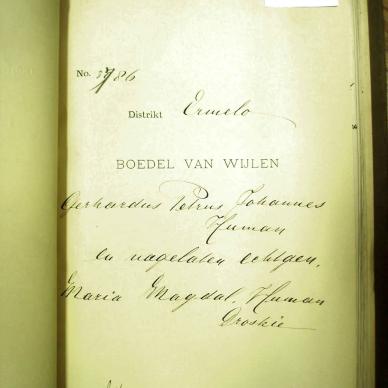 No. 3786
Distrikt Ermelo
BOEDEL VAN WIJLEN
Gerhardus Petrus Johannes
Human
en nagelaten echtgen.
Maria Magdal. Human
Droskie